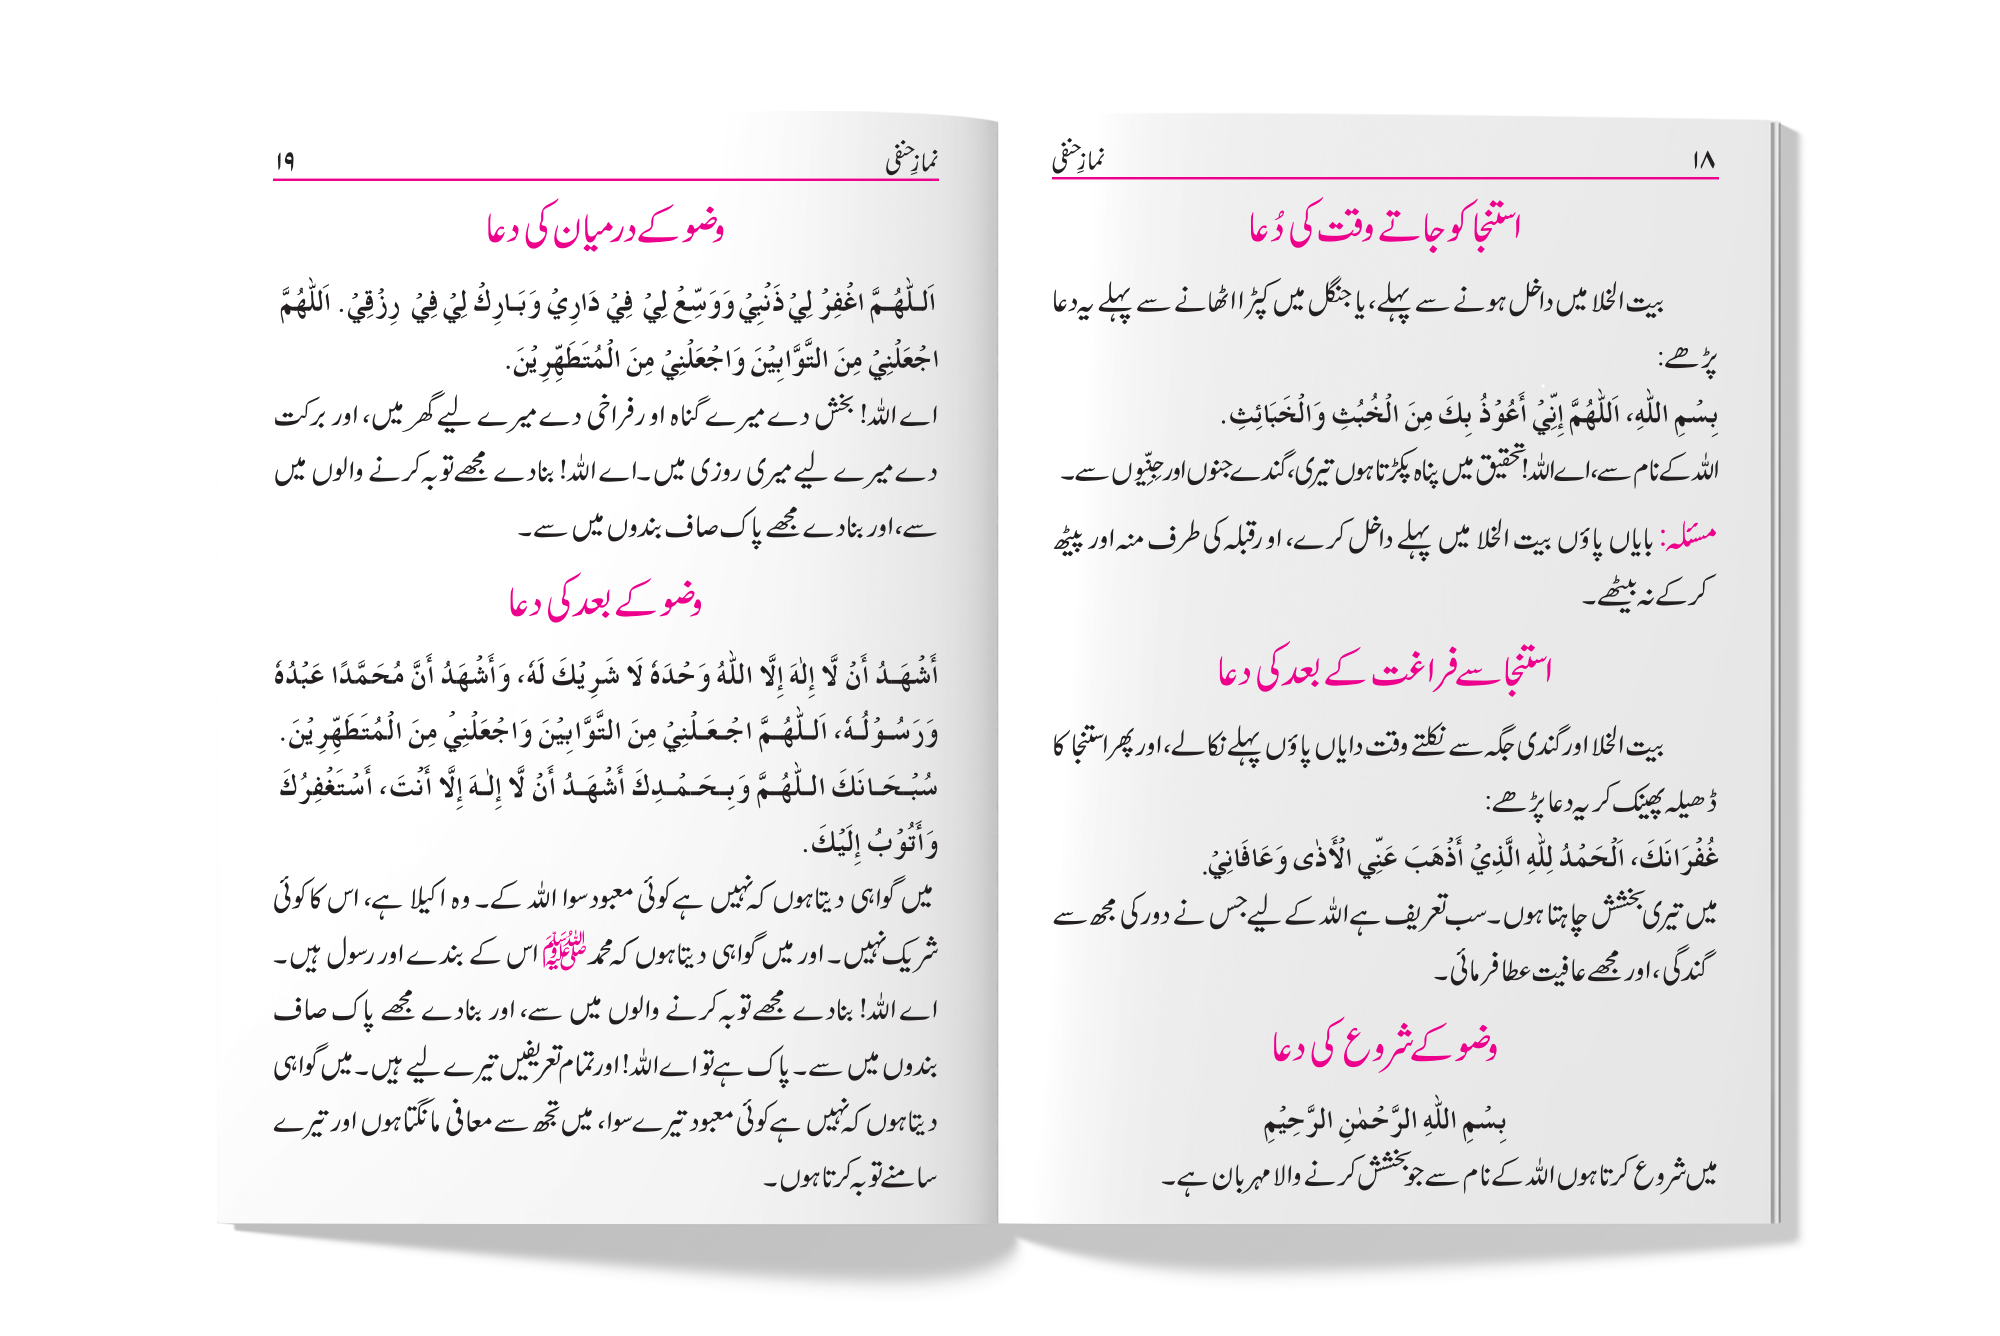 ۱۸
نمازِ حنفی
استنجا کو جاتے وقت کی دُعا
بیت الخلا میں داخل ہونے سے پہلے، یا جنگل میں کپڑا اٹھانے سے پہلے یہ دعا
پڑھے:
بِسْمِ اللّٰهِ، اَللّٰهُمَّ إِنِّيْ أَعُوْذُ بِكَ مِنَ الْخُبُثِ وَالْخَبَائِثِ.
اللہ کے نام سے، اے اللہ! تحقیق میں پناہ پکڑتا ہوں تیری، گندے جنوں اور جنِّیوں سے۔
مسئلہ: بایاں پاؤں بیت الخلا میں پہلے داخل کرے، اور قبلہ کی طرف منہ اور پیٹھ
کرکے نہ بیٹھے۔
استنجا سے فراغت کے بعد کی دعا
بیت الخلا اور گندی جگہ سے نکلتے وقت دایاں پاؤں پہلے نکالے، اور پھر استنجا کا
ڈھیلہ پھینک کر یہ دعا پڑھے:
غُفْرَانَكَ، اَلْحَمْدُ لِلّٰهِ الَّذِيْ أَذْهَبَ عَنِّي الْأَذٰى وَعَافَانِيْ.
میں تیری بخشش چاہتا ہوں۔ سب تعریف ہے اللہ کے لیے جس نے دور کی مجھ سے
گندگی، اور مجھے عافیت عطا فرمائی۔
وضو کے شروع کی دعا
بِسْمِ اللّٰهِ الرَّحْمٰنِ الرَّحِيْمِ
میں شروع کرتا ہوں اللہ کے نام سے جو بخشش کرنے والا مہربان ہے۔
نمازِ حنفی
۱۹
وضو کے درمیان کی دعا
اَللّٰهُمَّ اغْفِرْ لِيْ ذَنْبِيْ وَوَسِّعْ لِيْ فِيْ دَارِيْ وَبَارِكْ لِيْ فِيْ رِزْقِيْ. اَللّٰهُمَّ
اجْعَلْنِيْ مِنَ التَّوَّابِيْنَ وَاجْعَلْنِيْ مِنَ الْمُتَطَهِّرِيْنَ.
اے اللہ! بخش دے میرے گناہ اور فراخی دے میرے لیے گھر میں، اور برکت
دے میرے لیے میری روزی میں۔ اے اللہ! بنادے مجھے توبہ کرنے والوں میں
سے، اور بنادے مجھے پاک صاف بندوں میں سے۔
وضو کے بعد کی دعا
أَشْهَدُ أَنْ لَّا إِلٰهَ إِلَّا اللّٰهُ وَحْدَهٗ لَا شَرِيْكَ لَهٗ، وَأَشْهَدُ أَنَّ مُحَمَّدًا عَبْدُهٗ
وَرَسُوْلُهٗ، اَللّٰهُمَّ اجْعَلْنِيْ مِنَ التَّوَّابِيْنَ وَاجْعَلْنِيْ مِنَ الْمُتَطَهِّرِيْنَ.
سُبْحَانَكَ اللّٰهُمَّ وَبِحَمْدِكَ أَشْهَدُ أَنْ لَّا إِلٰهَ إِلَّا أَنْتَ، أَسْتَغْفِرُكَ
وَأَتُوْبُ إِلَيْكَ.
میں گواہی دیتا ہوں کہ نہیں ہے کوئی معبود سوا اللہ کے۔ وہ اکیلا ہے، اس کا کوئی
شریک نہیں۔ اور میں گواہی دیتا ہوں کہ محمد ﷺ اس کے بندے اور رسول ہیں۔
اے اللہ! بنادے مجھے توبہ کرنے والوں میں سے، اور بنادے مجھے پاک صاف
بندوں میں سے۔ پاک ہے تو اے اللہ! اور تمام تعریفیں تیرے لیے ہیں۔ میں گواہی
دیتا ہوں کہ نہیں ہے کوئی معبود تیرے سوا، میں تجھ سے معافی مانگتا ہوں اور تیرے
سامنے توبہ کرتا ہوں۔